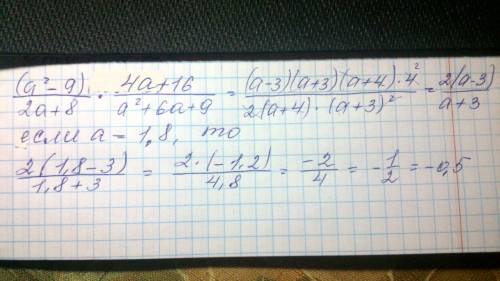 (a²-9)/(2a+8) · (4a+16)/(a²+6a+9) = ((a-3)(a+3)(a+4)·4²)/(2(a+4)·(a+3)²) = 2(a-3)/(a+3)
если a = 1,8, то
2(1,8-3)/(1,8+3) = 2·(-1,2)/4,8 = -2/4 = -1/2 = -0,5